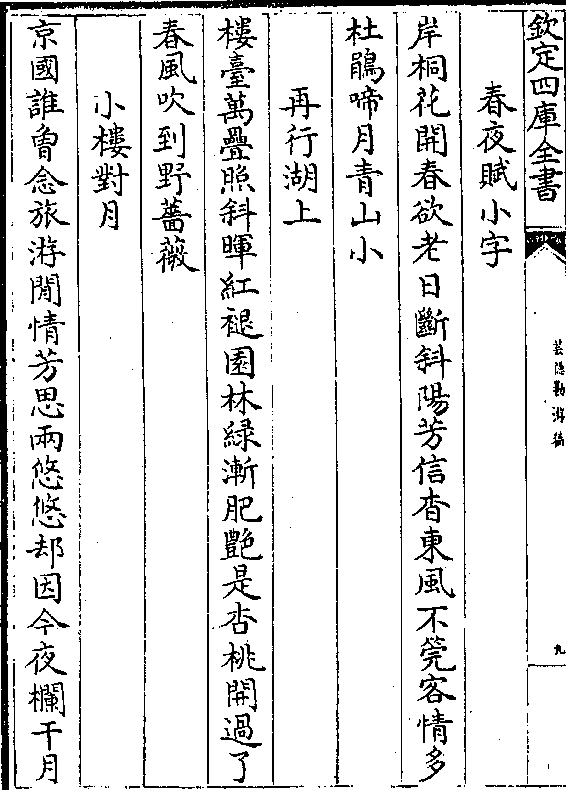 欽定四庫全書
芸隱勌游稿
九
春夜賦小字
岸桐花開春欲老日斷斜陽芳信杳東風不筦客情多
杜鵑啼月青山小
再行湖上
樓臺萬疊照斜暉紅褪園林緑漸肥艷是杏桃開過了
春風吹到野薔薇
小樓對月
京國誰曾念旅游閒情芳思兩悠悠却因今夜欄干月